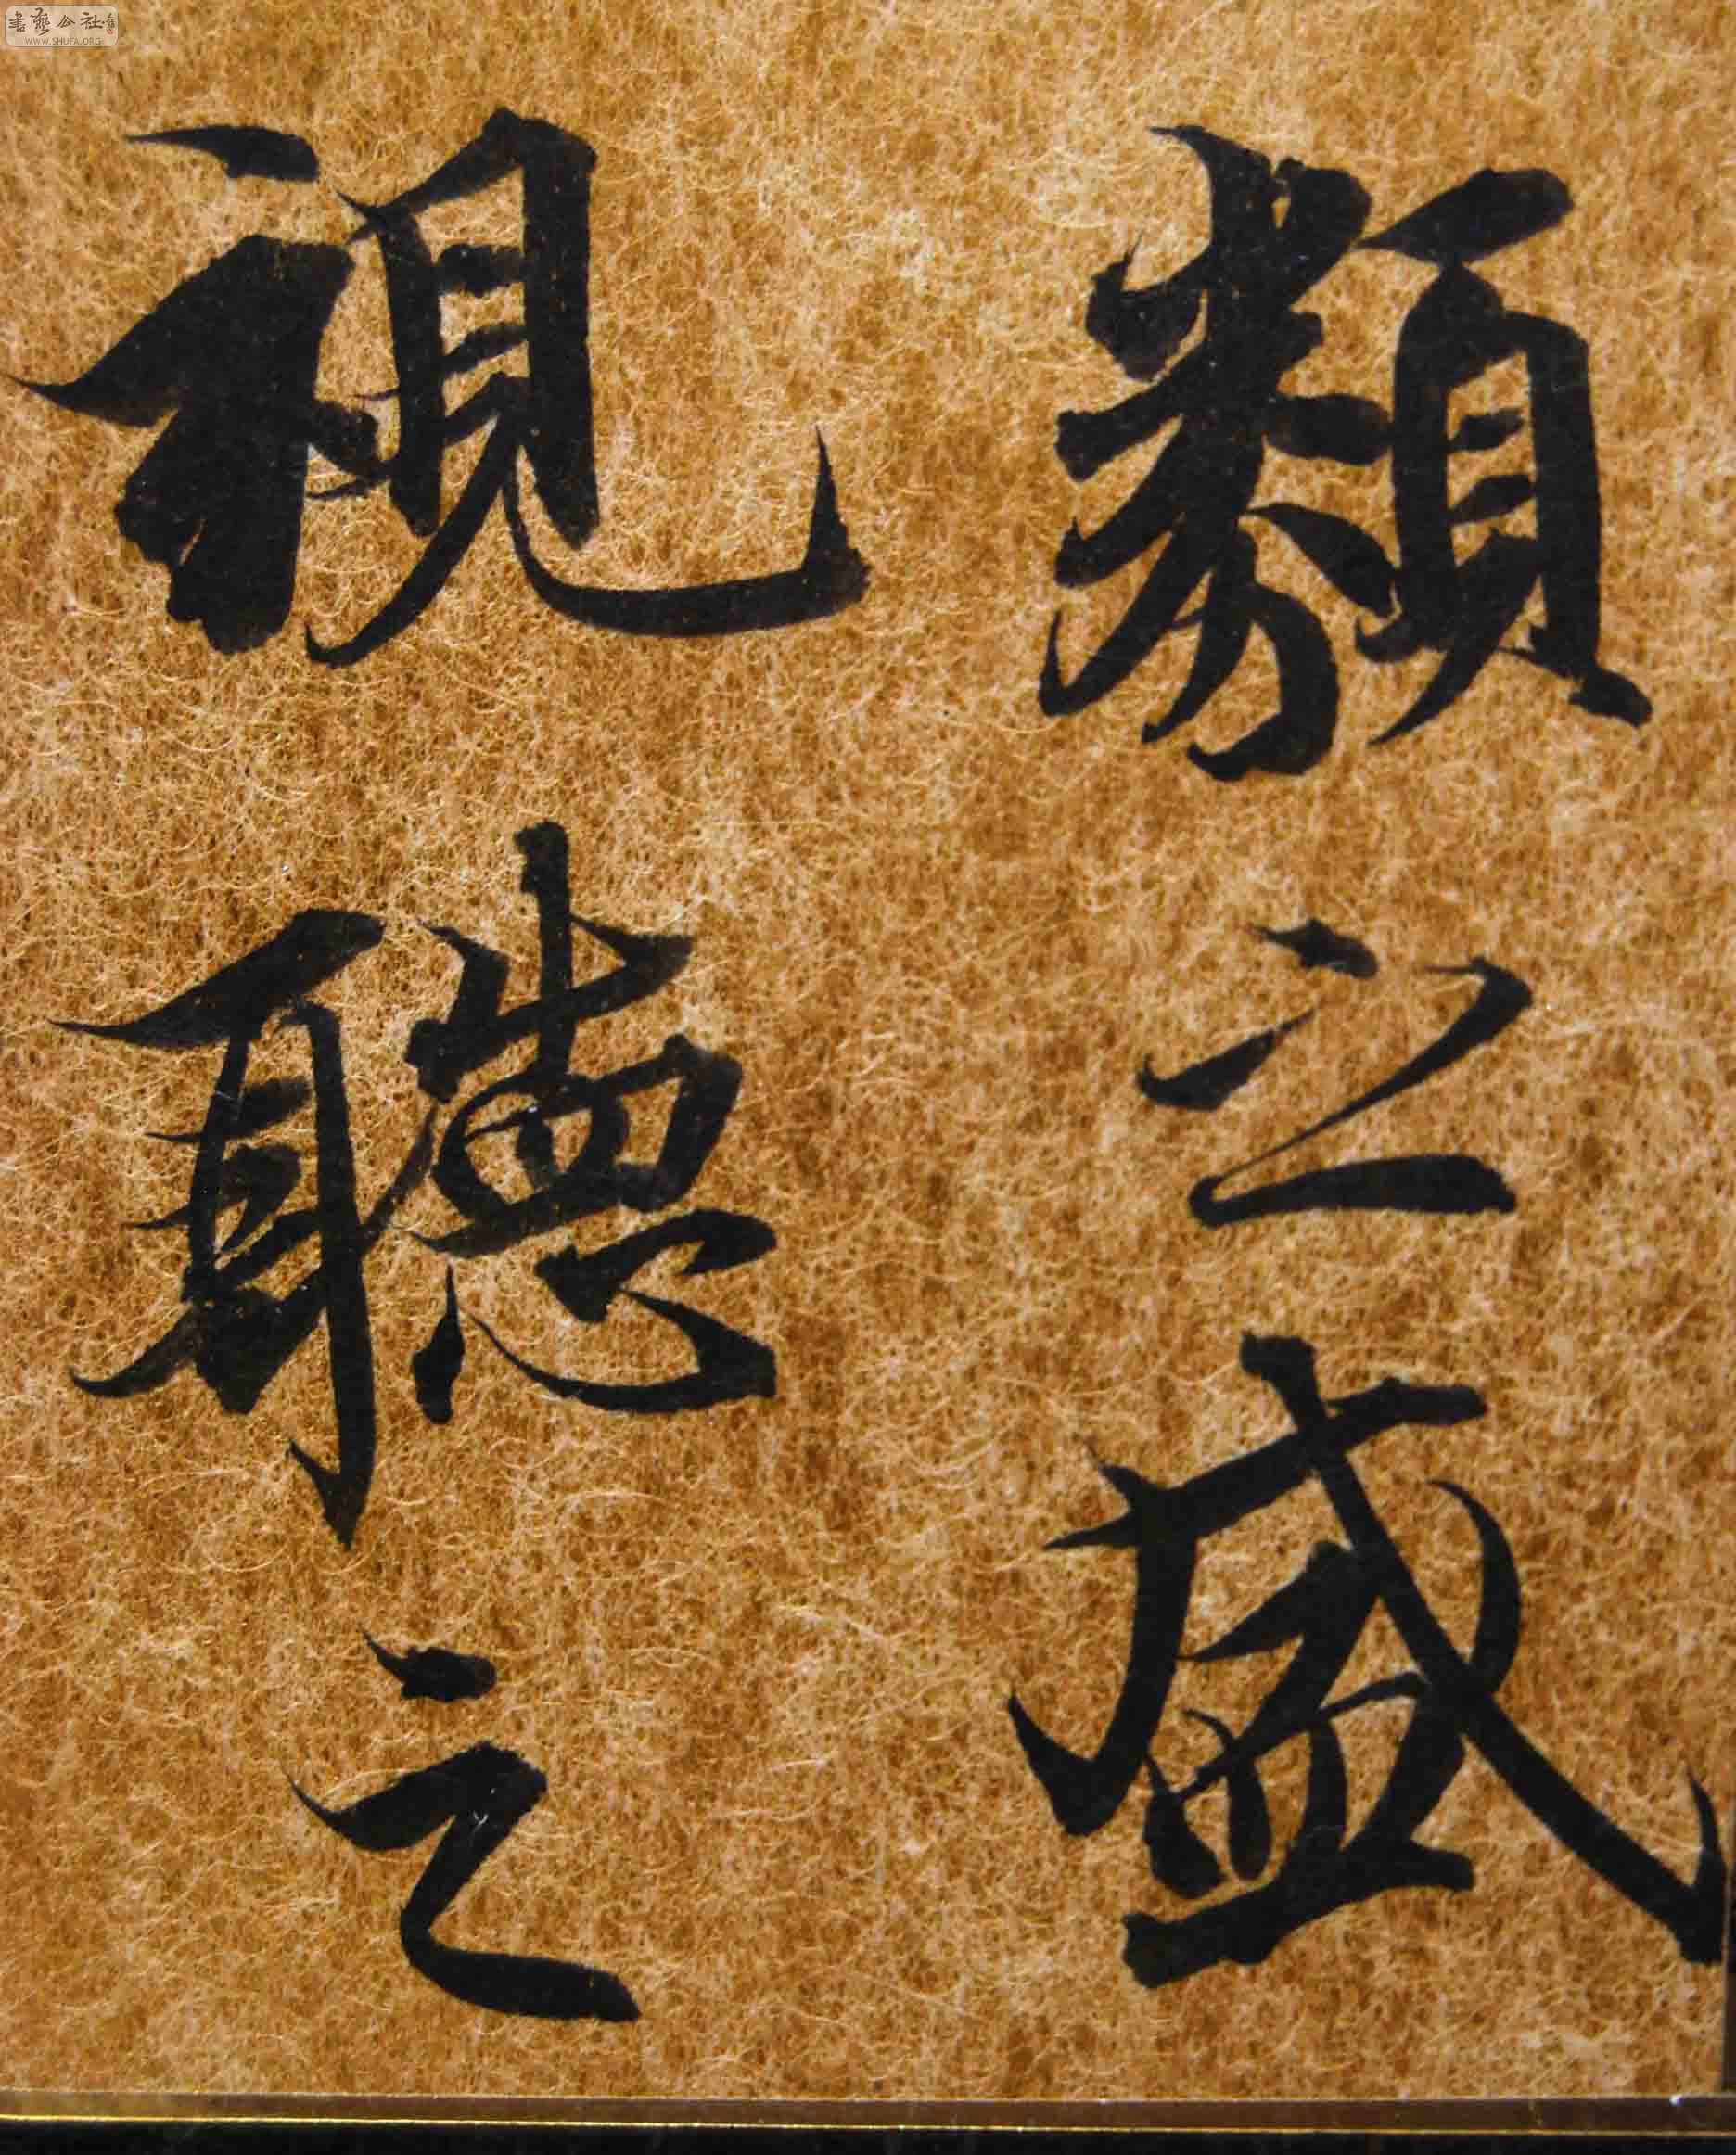 類之盛
視聽之
書藝公社
WWW.SHUFA.ORG